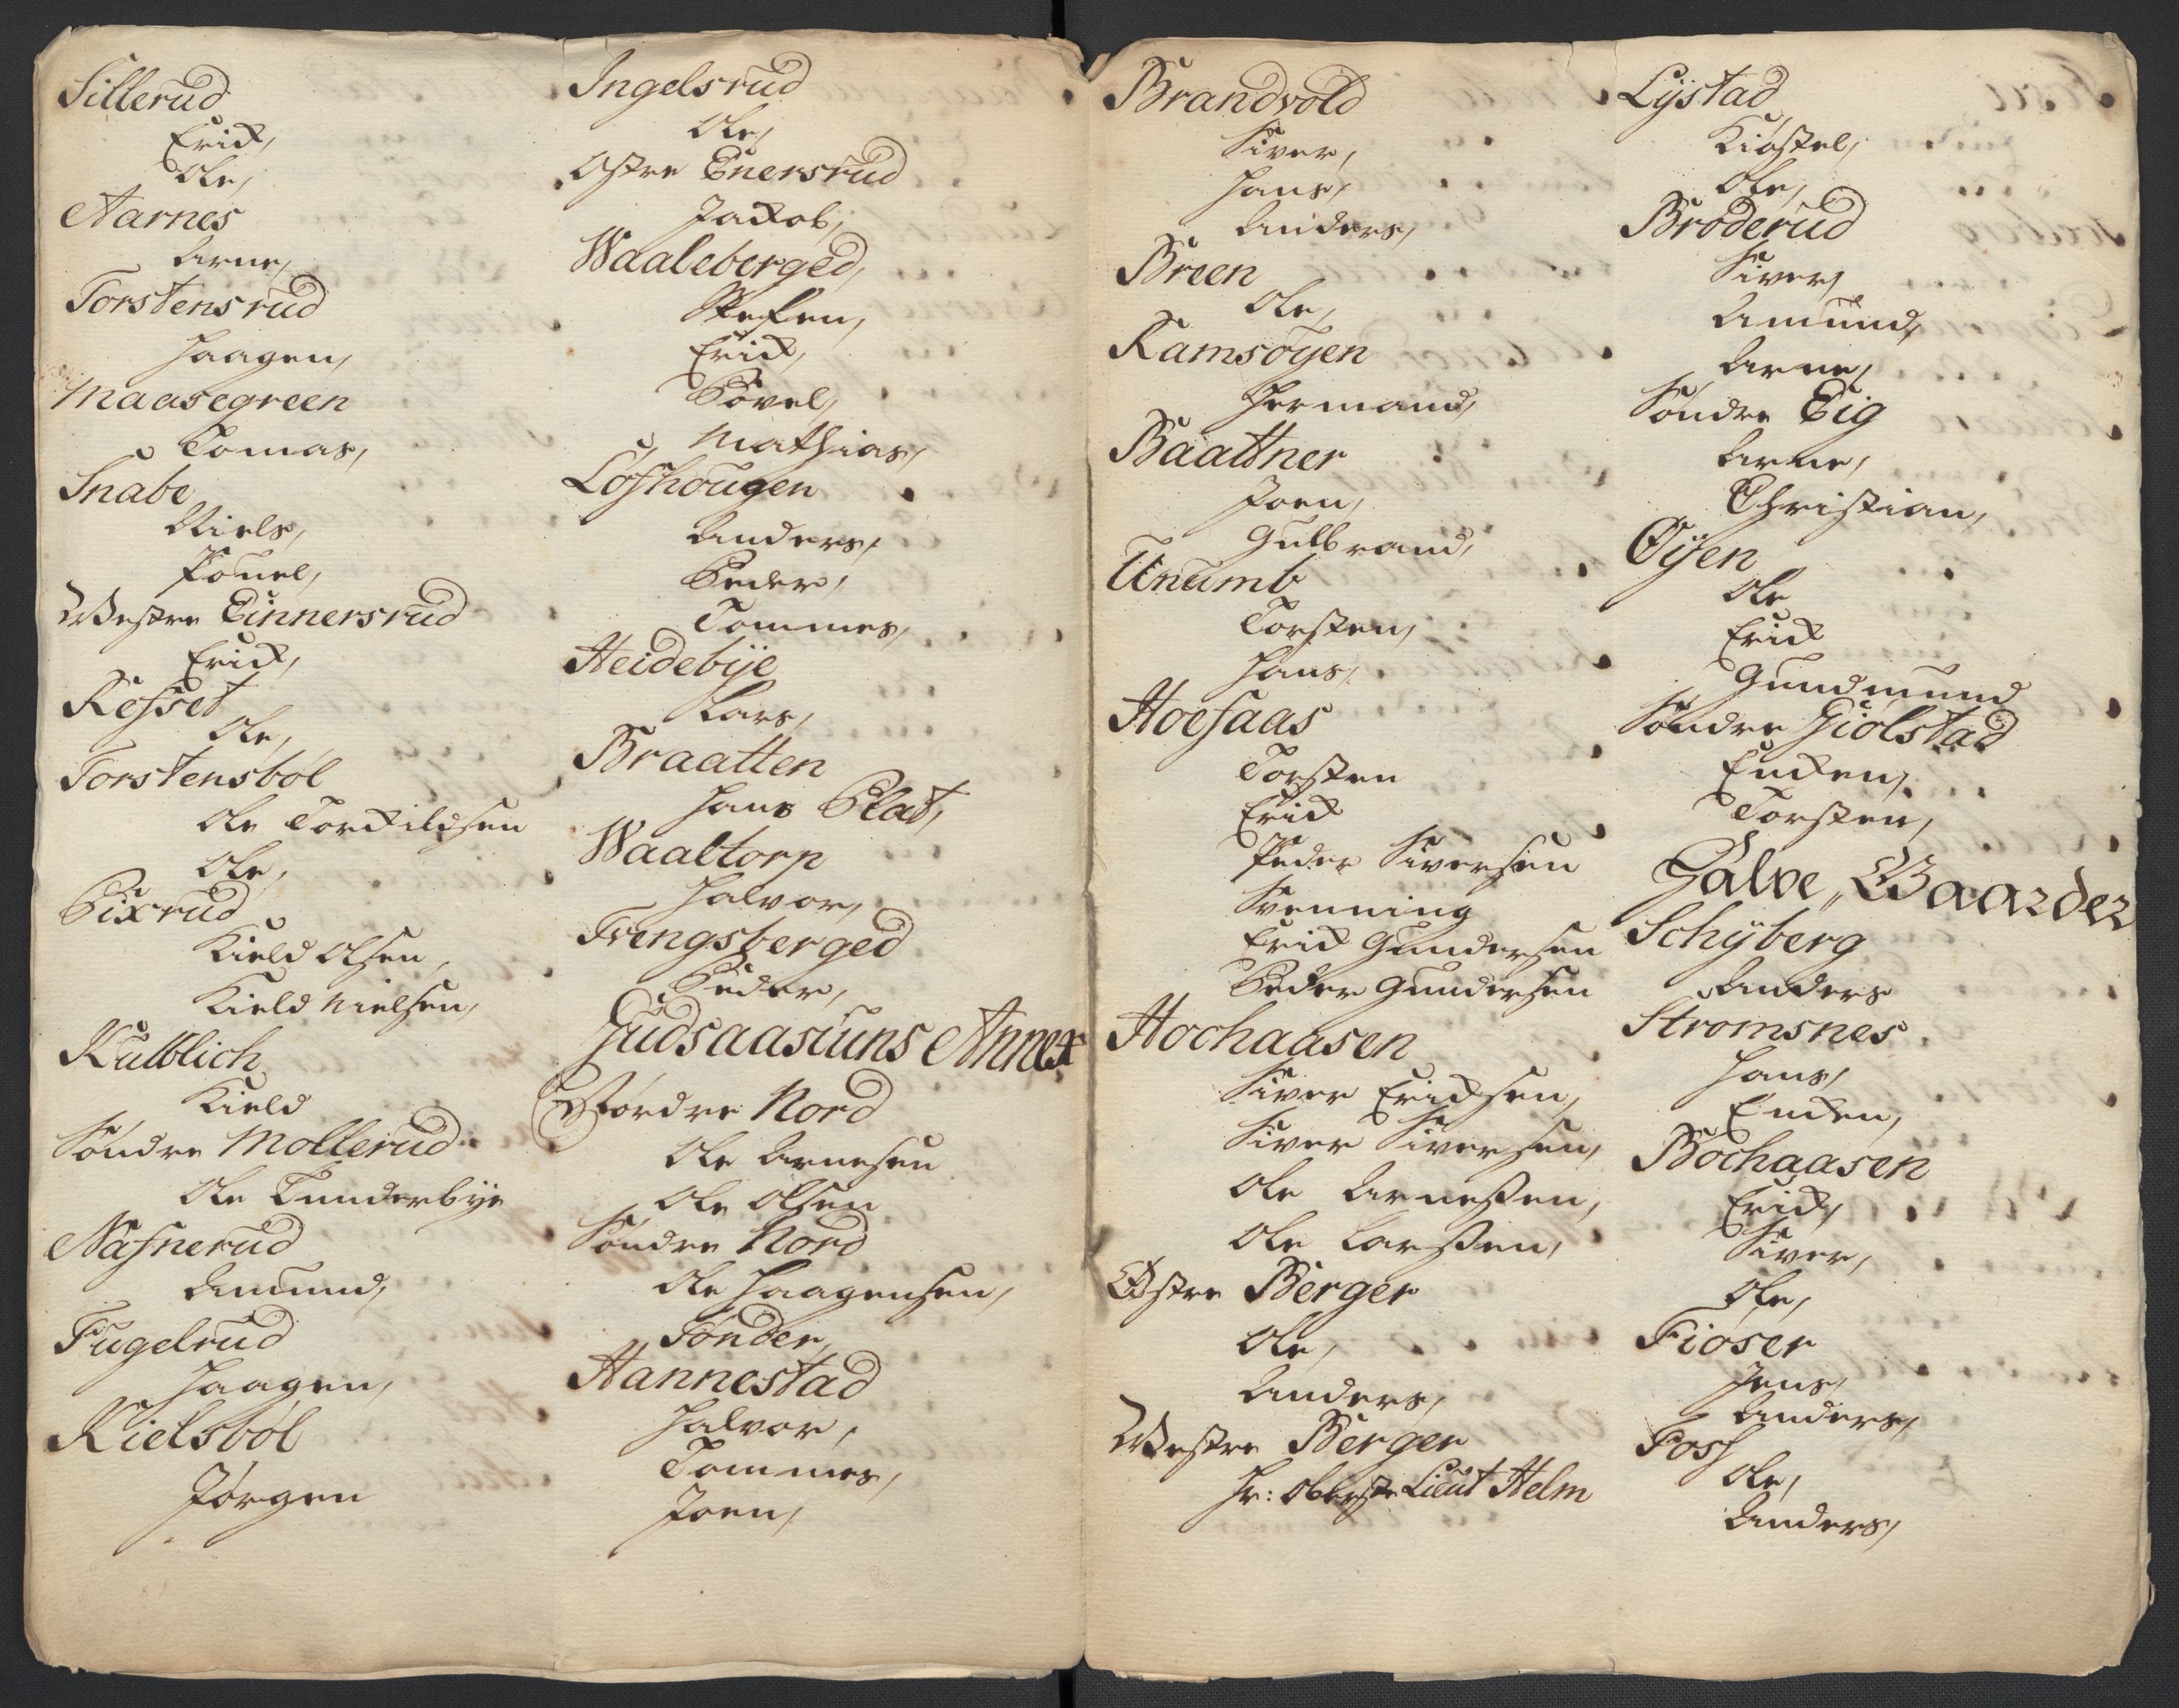 Sillerud
Erich,
Ole,
Aarnes
Arne,
Torstensrud
Haagen,
Maasegreen
Tomas,
Snabe
Niels,
Pouel,
Westre Einnersrud
Erich,
Resset
Ole,
Torstensbøl
Ole Torchildsen
Ole,
Pixrud
Kield Olsen,
Kield Nielsen,
Kulblich
Kield
Søndre Møllerud
Ole Tunderbÿe
Nafnerud
Amund,
Fugelrud
Haagen,
Kielsbøl
Jørgen
Ingelsrud
Ole,
Østre Enersrud
Jachob,
Waaleberged,
Stefen,
Erich,
Povel,
Mathias,
Løshougen
Anders,
Peder,
Tommes,
Heidebÿe
Lars,
Braatten
Hans Plat,
Waaltorp
Halvor,
Frengsberged
Peder,
Gudsaasiuns Annex
Nordre Nord
Ole Arnesen
Ole Olsen
Søndre Nord
Ole Haagensen,
Tønder,
Hannestad
Halvor,
Tommes,
Joen,
Brandvold
Siver,
Hans,
Anders,
Breen
Ole,
Ramsøÿen
Hermand,
Baattner
Joen,
Gulbrand,
Unumb
Torsten,
Hans,
Hoesaas
Torsten
Erich
Peder Siversen
Svenning
Erich Gundersen
Peder Gundersen
Hochaasen
Siver Erichsen,
Siver Siversen,
Ole Arnesen,
Ole Larsen,
Østre Berger
Ole,
Anders,
Westre Berger
Hr: Oberste Lieut Helm
Lÿstad
Kiøstel,
Ole,
Brøderud
Siver,
Amund,
Arne,
Søndre Eig
Arne,
Christian,
Øÿen
Ole
Erich
Gundmund
Søndre Giølstad
Enchen,
Torsten,
Halve„ Gaarder
Schÿberg
Anders
Strømsnes
Hans,
Enchen,
Bochaasen
Erich,
Siver,
Ole,
Fiøser
Jens,
Anders,
Foss
Ole,
Anders,